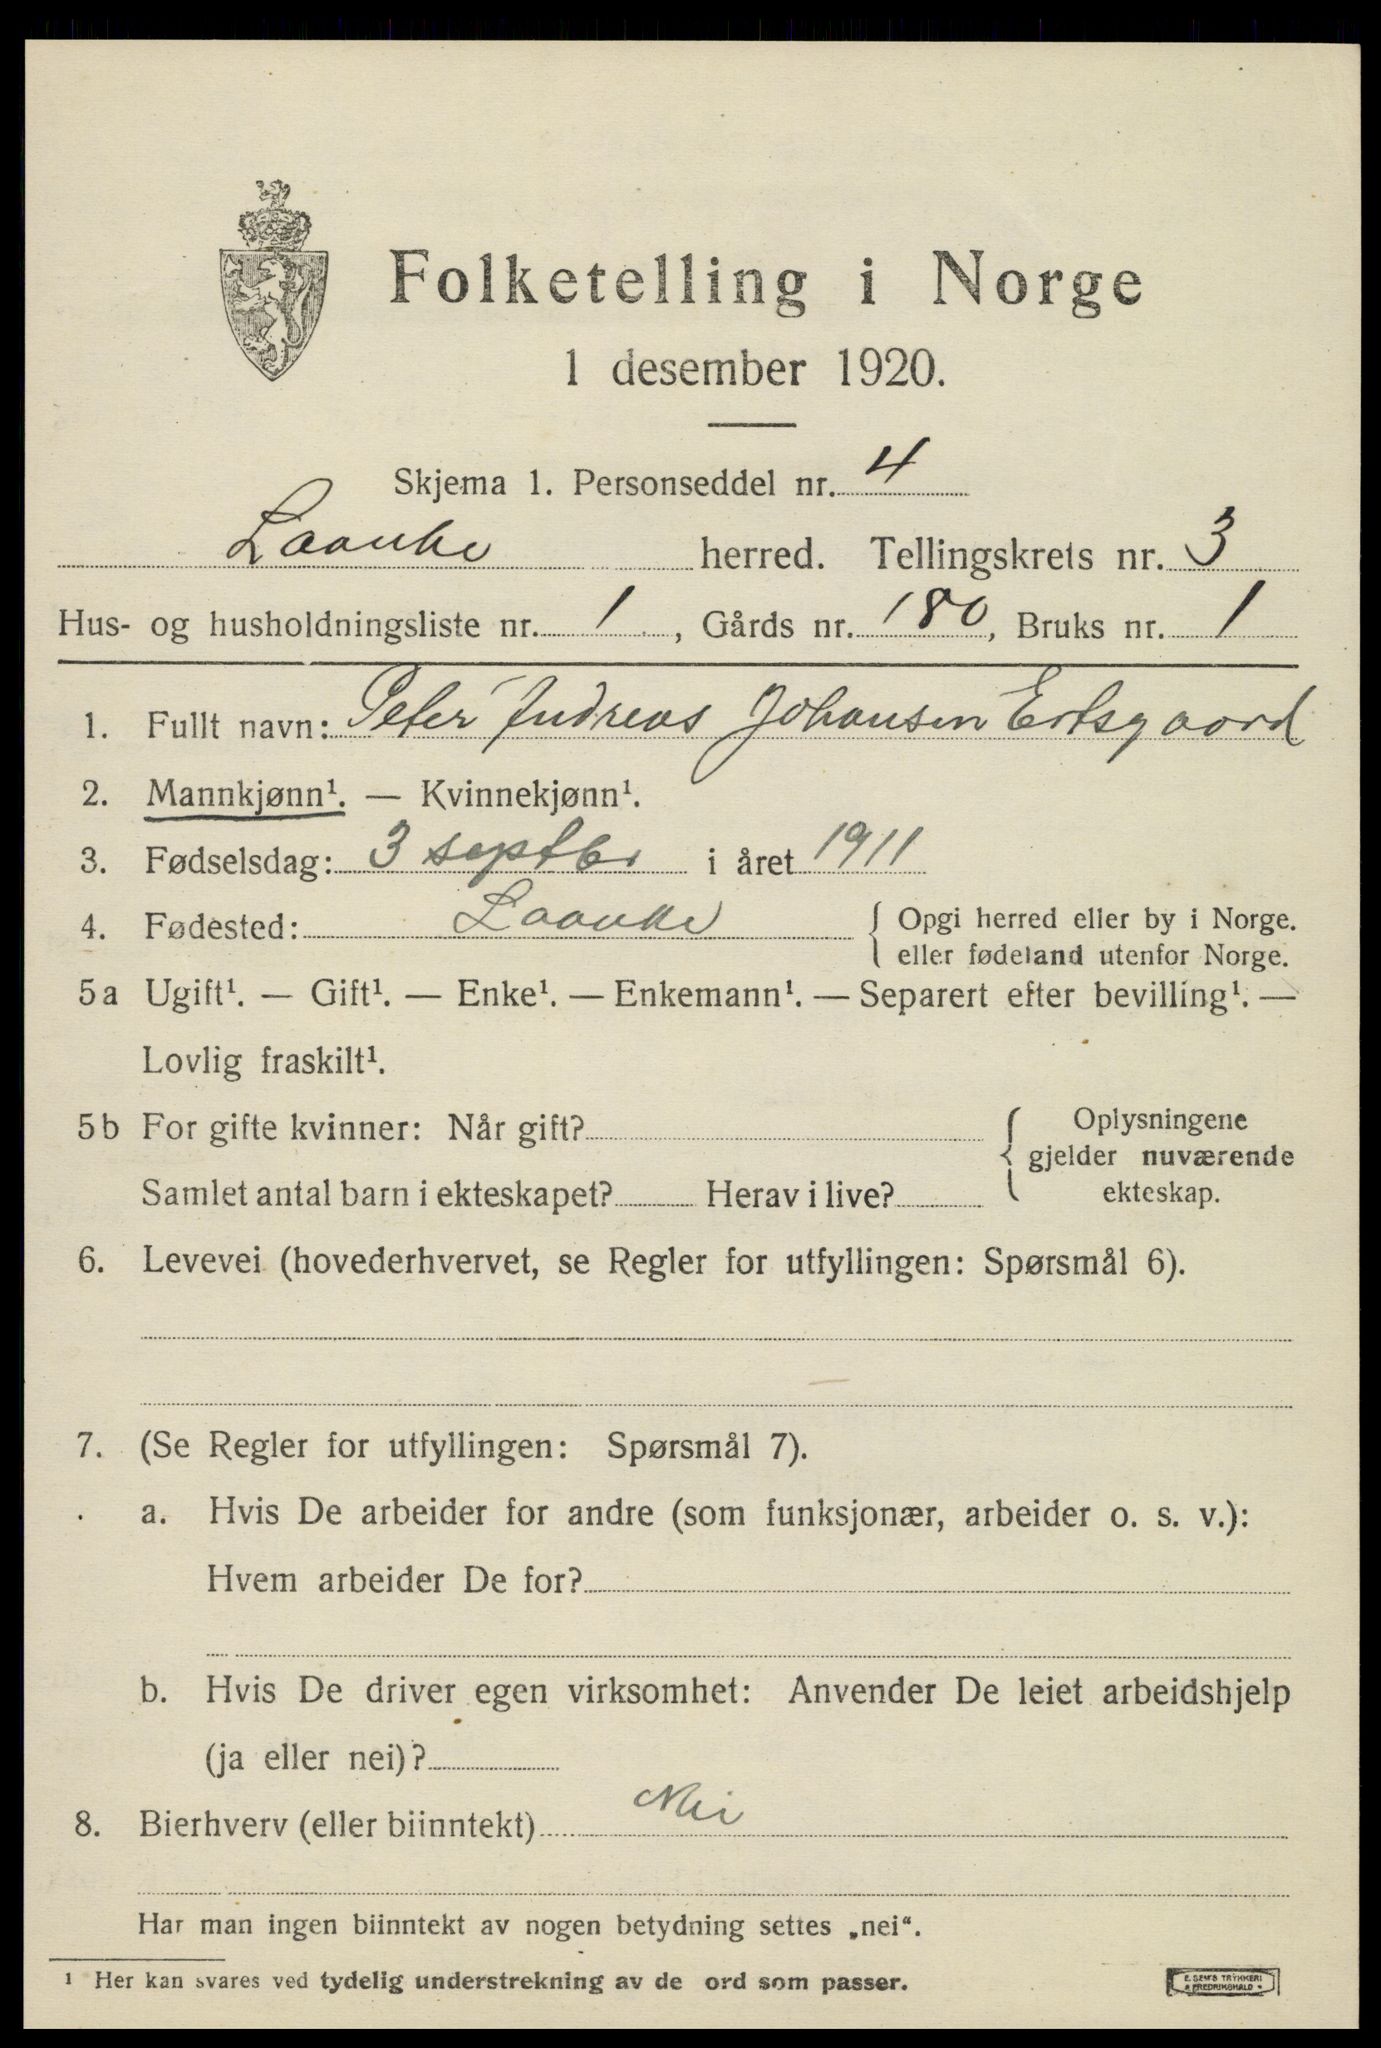 Folketelling i Norge
1 desember 1920.
Skjema 1. Personseddel nr. 4
Laanke herred. Tellingskrets nr. 3
Hus- og husholdningsliste nr. 1, Gårds nr. 180, Bruks nr. 1
1. Fullt navn: Peter Andreas Johansen Ertsgaard
2. Mannkjønn¹. — Kvinnekjønn¹.
3. Fødselsdag: 3 septbr i året 1911
4. Fødested: Laanke { Opgi herred eller by i Norge.
eller fødeland utenfor Norge.
5a Ugift¹. — Gift¹. — Enke¹. — Enkemann¹. — Separert efter bevilling¹. —
Lovlig fraskilt¹.
5b For gifte kvinner: Når gift?
Samlet antal barn i ekteskapet? Herav i live?
{ Oplysningene
gjelder nuværende
ekteskap.
6. Levevei (hovederhvervet, se Regler for utfyllingen: Spørsmål 6).
7. (Se Regler for utfyllingen: Spørsmål 7).
a. Hvis De arbeider for andre (som funksjonær, arbeider o. s. v.):
Hvem arbeider De for?
b. Hvis De driver egen virksomhet: Anvender De leiet arbeidshjelp
(ja eller nei)?
8. Bierhverv (eller biinntekt) Nei
Har man ingen biinntekt av nogen betydning settes „nei“.
¹ Her kan svares ved tydelig understrekning av de ord som passer.
E. SEM'S TRYKKERI
FREDRIKSHALD